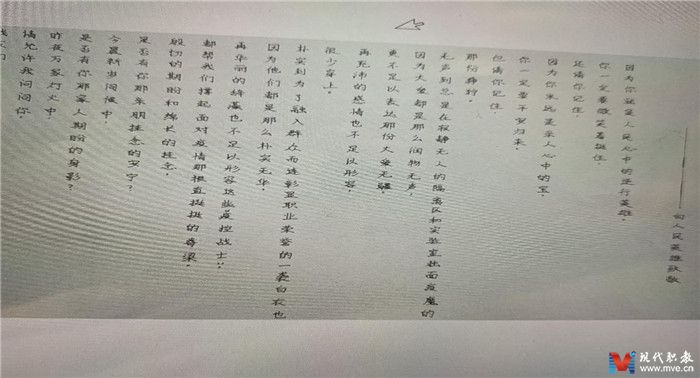 请允许我问问你
昨夜万家灯火中，
是否有你那家人期盼的身影？
今晨新岁问候中，
是否有你那亲朋挂念的安宁？
殷切的期盼和绵长的挂念，
都帮我们撑起面对疫情那根直挺挺的脊梁。
再华丽的辞藻也不足以形容这些疫控战士，
因为他们都是那么朴实无华，
朴实到为了融入群众而连彰显职业荣誉的一袭白衣也
很少穿上。
再充沛的感情也不足以形容，
更不足以表达那份大爱无疆，
因为大爱都是那么润物无声，
无声到总是在寂静无人的隔离区和实验室独面疫魔的
那份狰狞。
但请你记住，
你一定要平安归来，
因为你永远是亲人心中的宝，
还请你记住，
你一定要微笑着挺住，
因为你就是人民心中的逆行英雄。
——向人民英雄致敬
现代职教
www.mve.cn